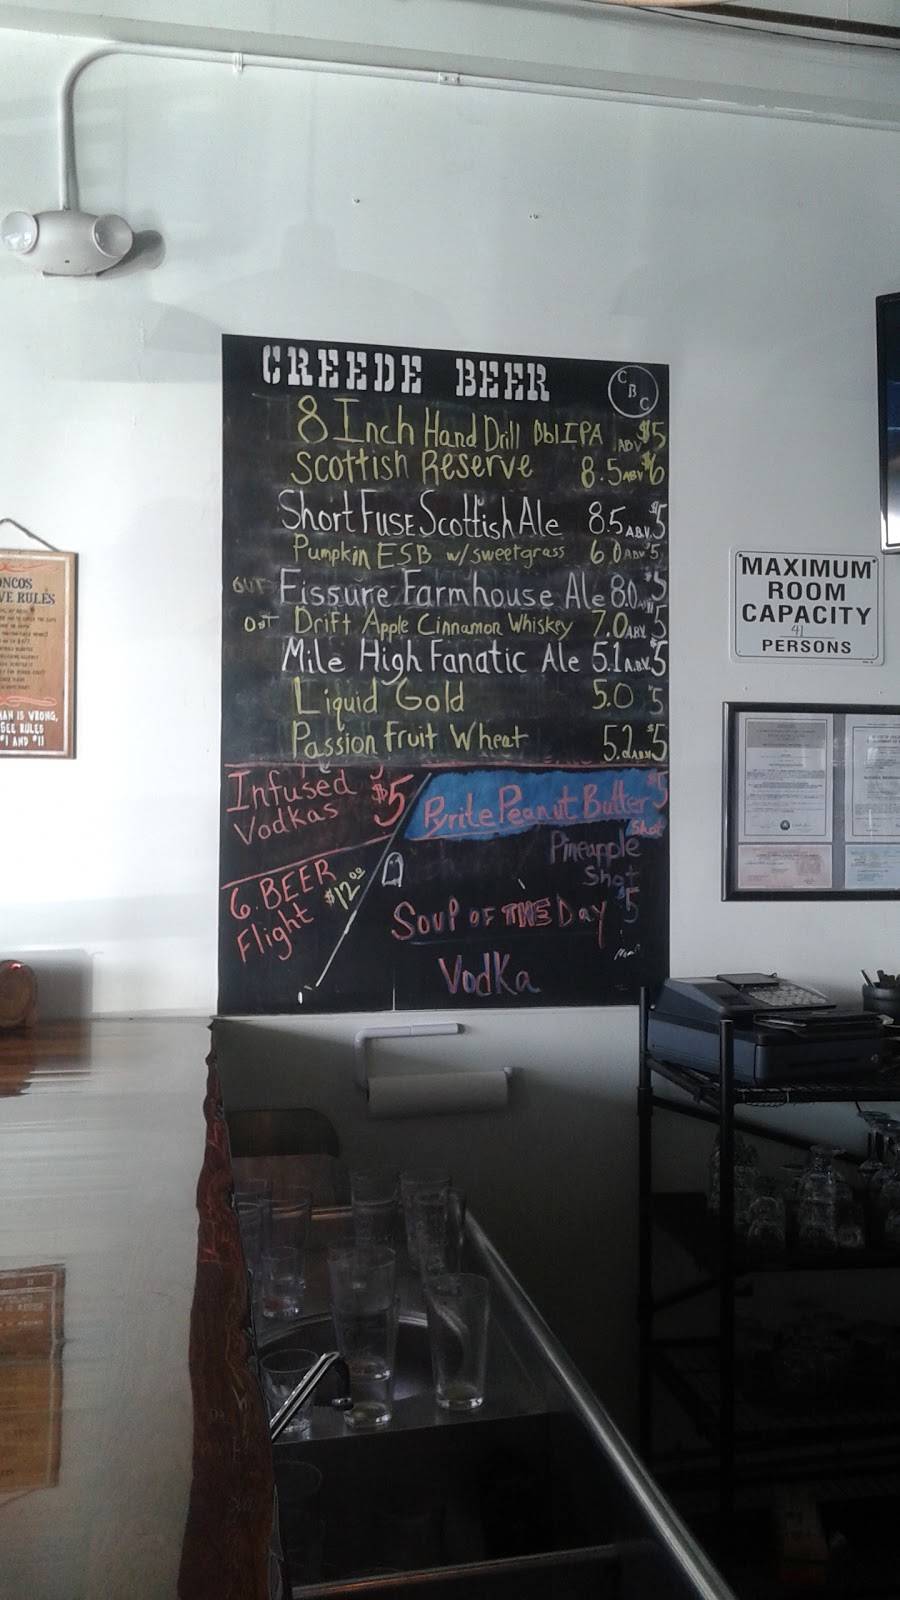 CREEDE BEER
CBC
8 Inch Hand Drill Dbl IPA ABV $5
Scottish Reserve 8.5 ABV $6
Short Fuse Scottish Ale 8.5 A.B.V. $5
Pumpkin ESB w/ sweetgrass 6.0 ABV $5
OUT Fissure Farmhouse Ale 8.0 $5
OUT Drift Apple Cinnamon Whiskey 7.0 ABV 5
Mile High Fanatic Ale 5.1 A.B.V. $5
Liquid Gold 5.0 $5
Passion Fruit Wheat 5.2 ABV $5
Infused Vodkas $5
Pyrite Peanut Butter Shot $5
Pineapple Shot $5
6. BEER Flight $12.00
Soup of THE Day
Vodka
MAXIMUM
ROOM
CAPACITY
41
PERSONS
ONCOS
VE RULES
MAN IS WRONG,
SEE RULES
#1 AND #11